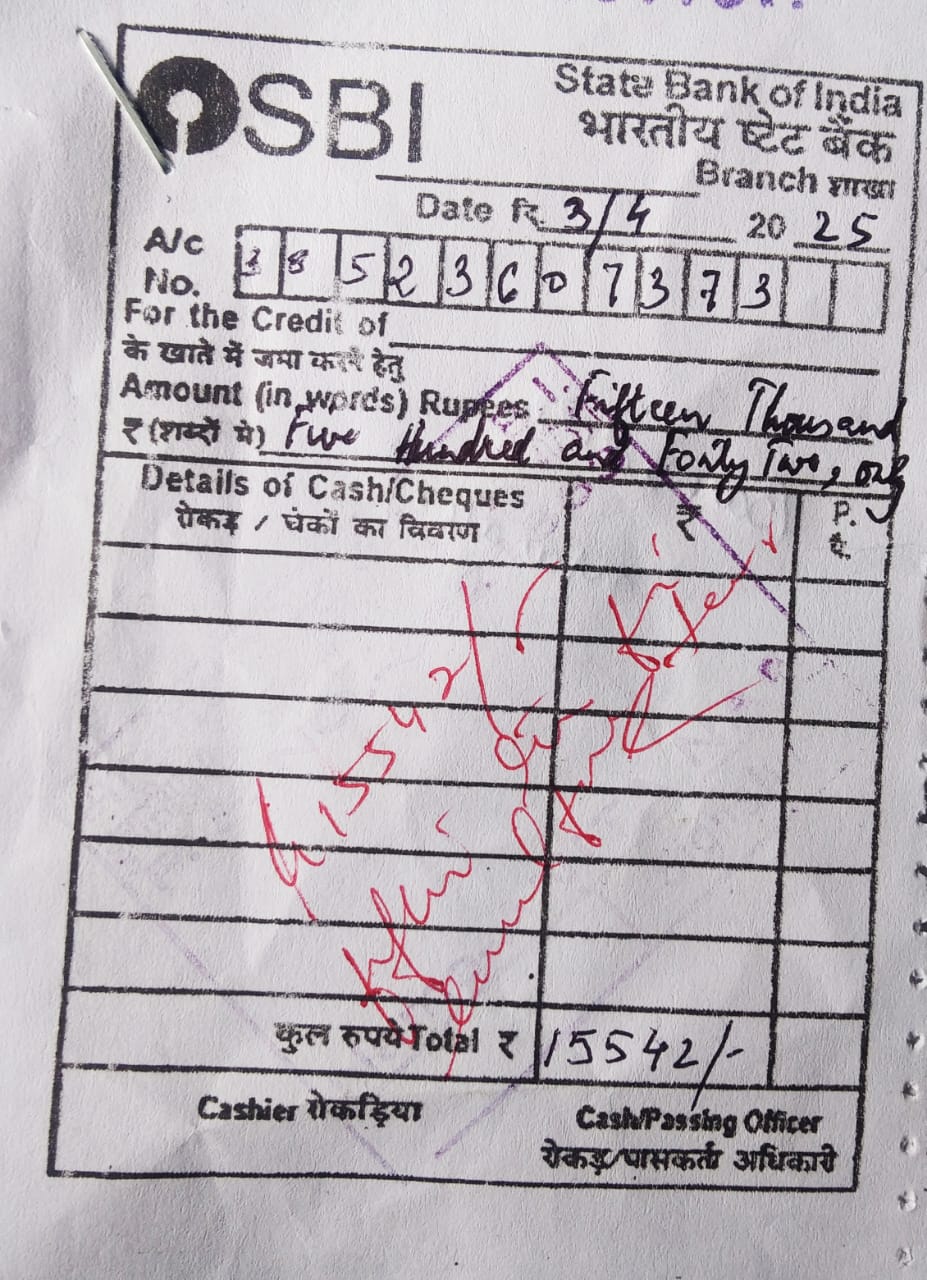 SBI
State Bank of India
भारतीय स्टेट बैंक
Branch शाखा
Date दि. 3/4 20 25
A/c No. 38523607373
For the Credit of
के खाते में जमा करने हेतु
Amount (in words) Rupees Fifteen Thousand
₹ (शब्दों में) Five Hundred and Forty Two, only
Details of Cash/Cheques ₹ P.
रोकड़ / चेकों का विवरण पै.
कुल रुपये Total ₹ 15542/-
Cashier रोकड़िया
Cash/Passing Officer
रोकड़/पासकर्ता अधिकारी